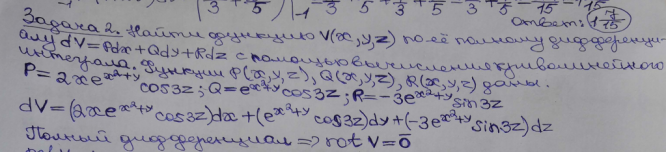 Ответ: 1 7/15
Задача 2. Найти функцию V(x,y,z) по её полному дифференци-
алу dV=Pdx+Qdy+Rdz с помощью вычисления криволинейного
интеграла. Функции P(x,y,z), Q(x,y,z), R(x,y,z) даны.
P=2xe^{x²+y}cos3z; Q=e^{x²+y}cos3z; R=-3e^{x²+y}sin3z
dV=(2xe^{x²+y}cos3z)dx+(e^{x²+y}cos3z)dy+(-3e^{x²+y}sin3z)dz
Полный дифференциал => rot V=0̄